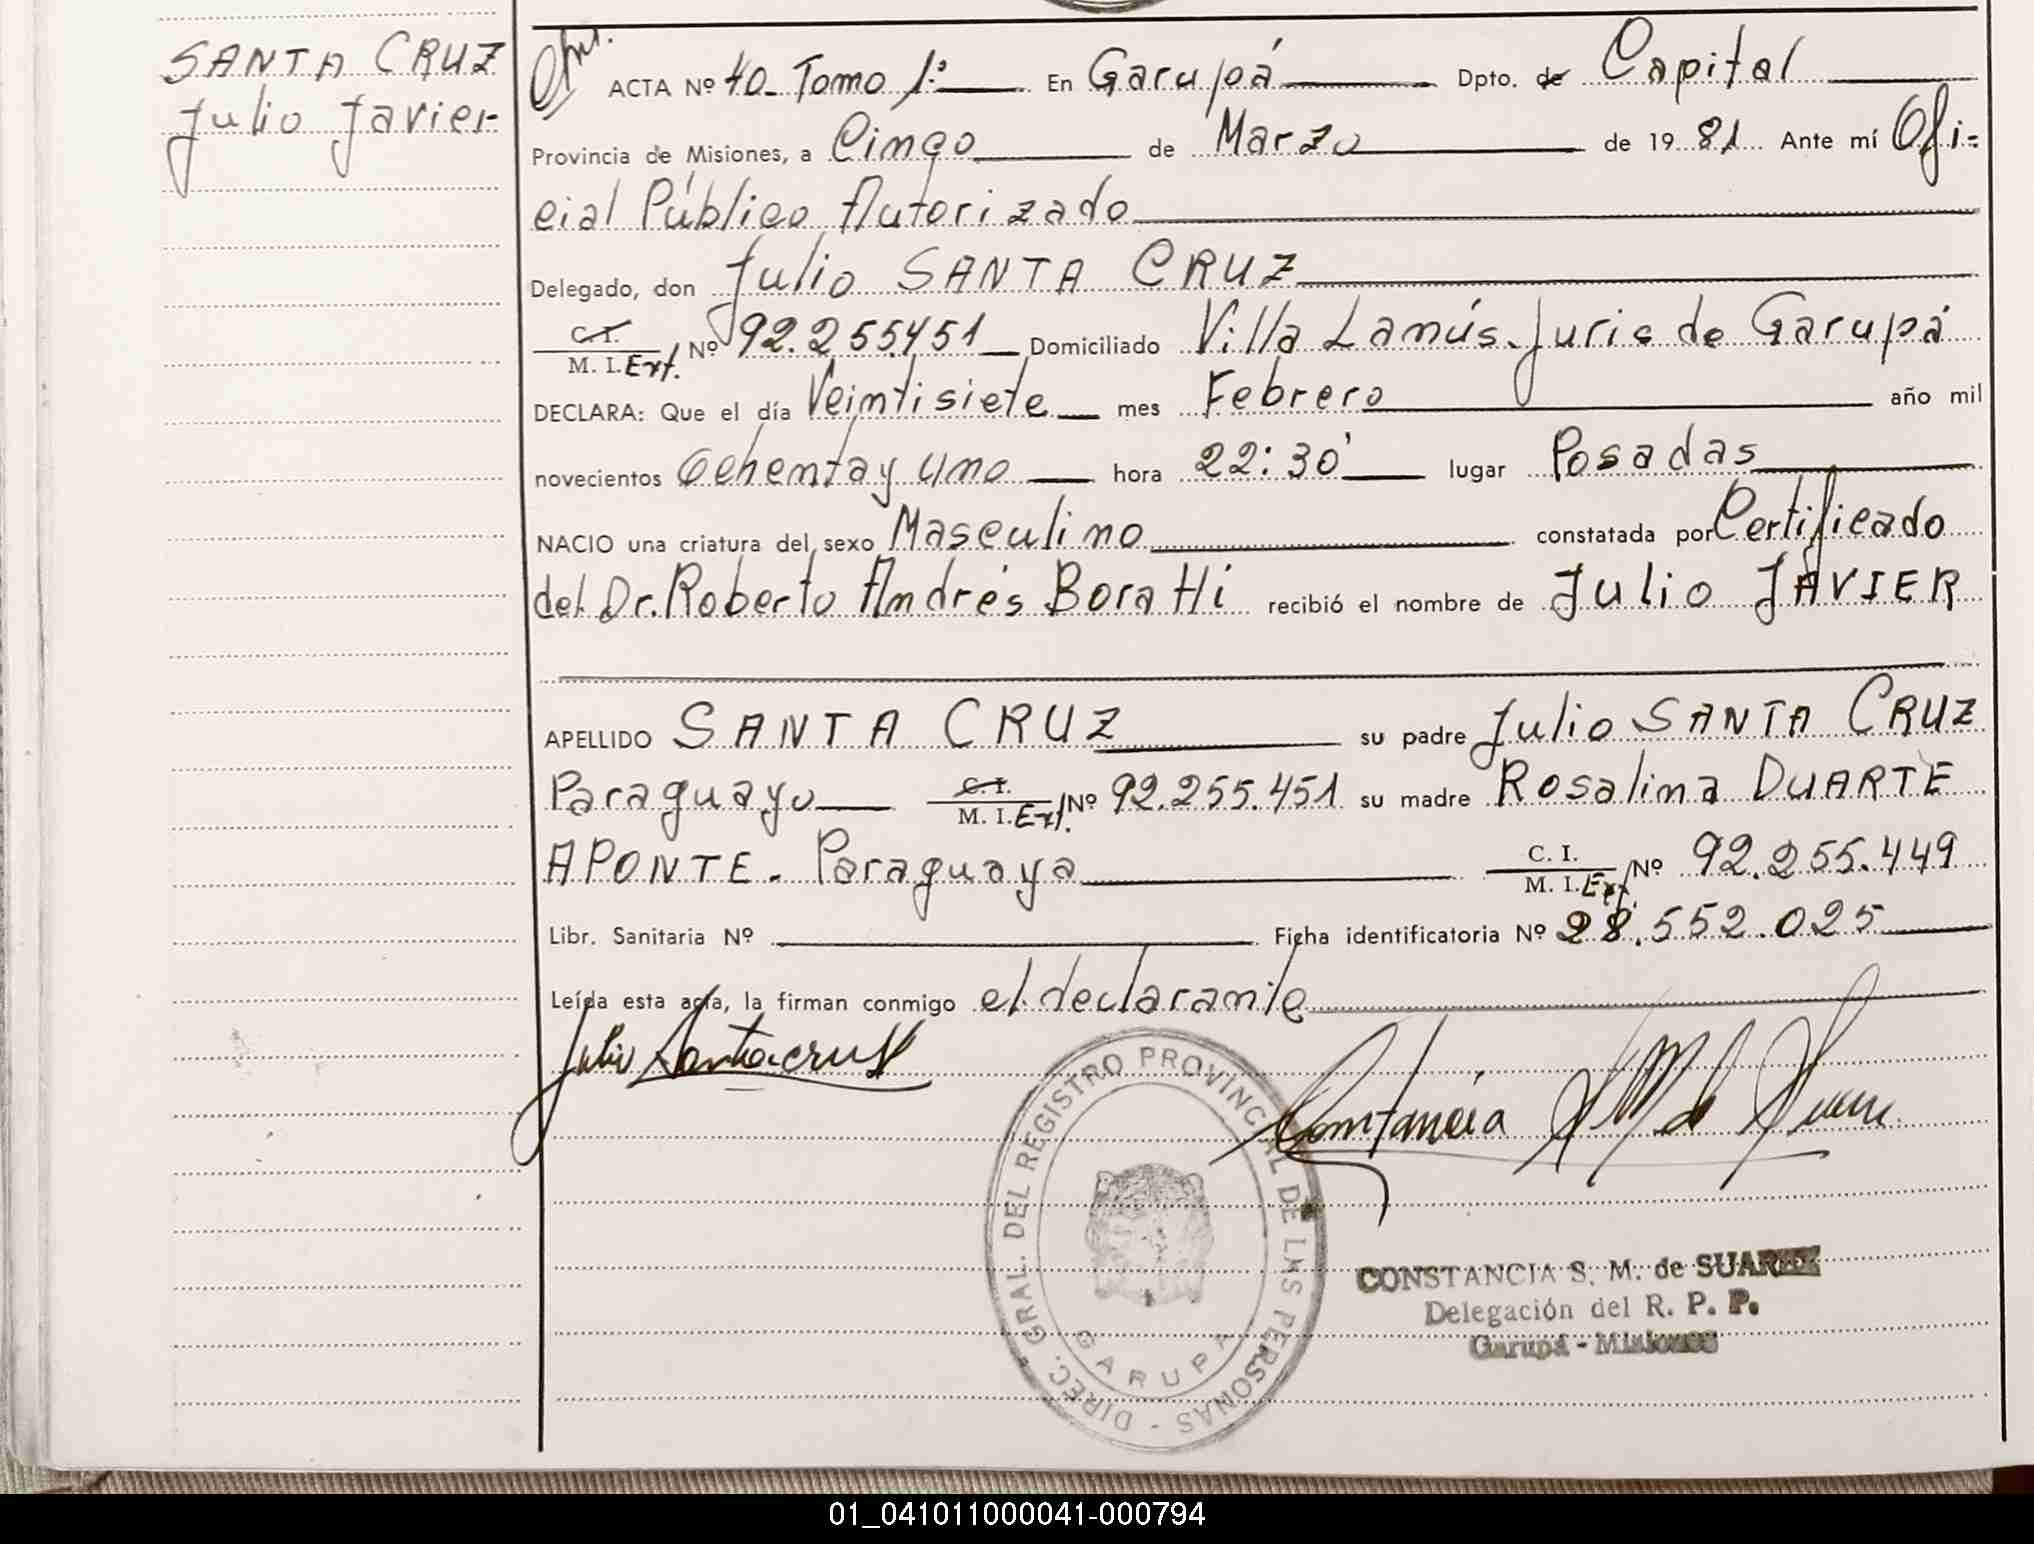 SANTA CRUZ
Julio Javier
ACTA Nº 40 Tomo 1º En Garupá Dpto. de Capital
Provincia de Misiones, a Cinco de Marzo de 1981 Ante mí Ofi-
cial Público Autorizado
Delegado, don Julio SANTA CRUZ
C. I.
M. I. Ext. Nº 92.255.451 Domiciliado Villa Lanús. Juris de Garupá
DECLARA: Que el día Veintisiete mes Febrero año mil
novecientos Ochenta y uno hora 22:30' lugar Posadas
NACIO una criatura del sexo Masculino constatada por Certificado
del Dr. Roberto Andrés Boratti recibió el nombre de Julio JAVIER
APELLIDO SANTA CRUZ su padre Julio SANTA CRUZ
Paraguayo C. I. M. I. Ext. Nº 92.255.451 su madre Rosalina DUARTE
APONTE. Paraguaya C. I. M. I. Ext. Nº 92.255.449
Libr. Sanitaria Nº Ficha identificatoria Nº 28.552.025
Leída esta acta, la firman conmigo el declarante
Julio Santacruz
Constancia S M de Suarez
DIREC. GRAL. DEL REGISTRO PROVINCIAL DE LAS PERSONAS -
GARUPA
CONSTANCIA S. M. de SUAREZ
Delegación del R. P. P.
Garupá - Misiones
01_041011000041-000794